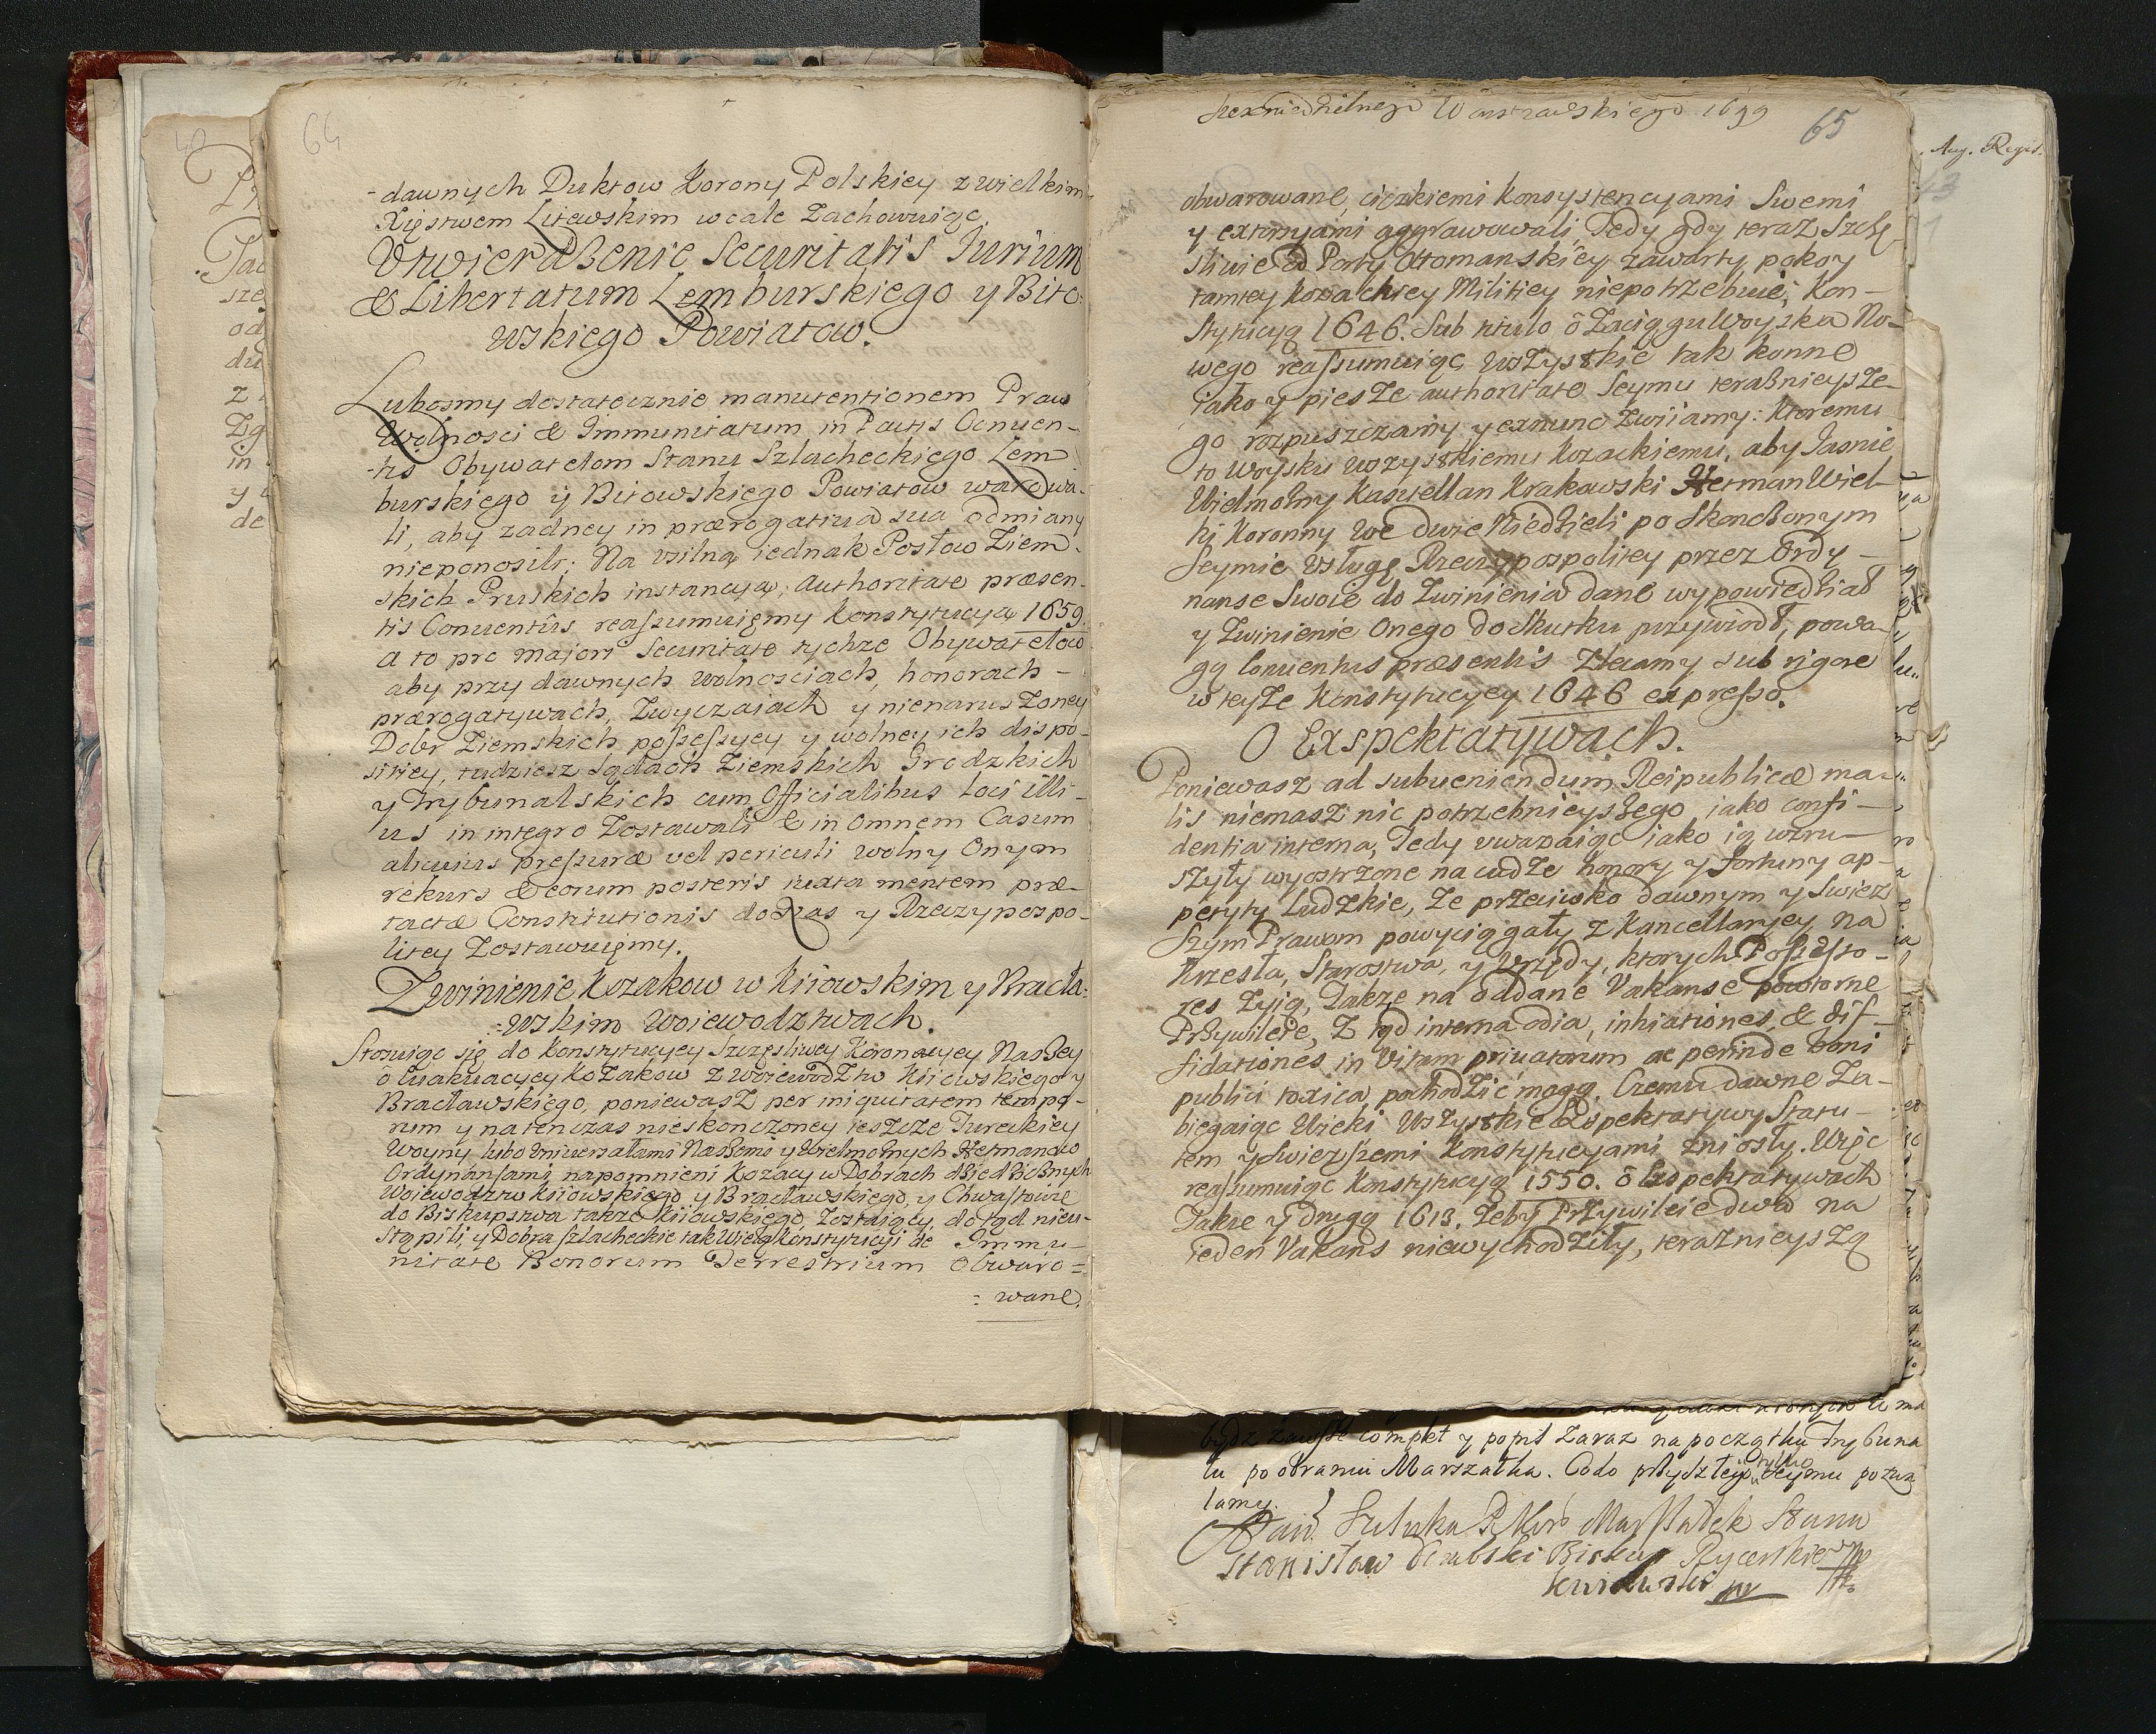 64
-dawnych Duktow Korony Polskiey z wielkim
Xięstwem Litewskim wcale zachowuiąc.
Utwierdzenie Securitatis Iurium
& Libertatum Lemburskiego y Bito-
wskiego Powiatow.
Lubosmy dostatecznie manutentionem Praw
Wolnosci & Immunitatum in Pactis Conuen-
-tis Obywatelom Stanu Szlacheckiego Lem
burskiego y Bitowskiego Powiatow warowa-
li, aby zadney in prærogatiua sua odmiany
nieponosili; Na usilną iednak Posłow Ziem-
skich Pruskich instancyą, authoritate præsen-
tis Conuentûs reassumuięmy Konstytucyą 1659.
a to pro majori Securitate tychze Obywatelow
aby przy dawnych wolnosciach, honorach -
prærogatywach, Zwyczaiach y nienaruszoney
Dobr Ziemskich possessyey y wolney ich dispo-
sitiey, tudziesz Sądach Ziemskich Grodzkich
y Trybunalskich cum Officialibus loci illi-
us in integro Zostawali & in Omnem Casum
alicuius pressuræ vel periculi wolny Onym
rekurs & eorum posteris iuxta mentem præ-
tactæ Constitutionis do Nas y Rzeczypospo-
litey Zostawuięmy.
Zwinienie Kozakow w Kiiowskim y Bracła-
-wskim Woiewodztwach.
Stosuiąc się do Konstytucyey Szczęsliwey Koronacyey Naszey
ô Ewakuacyey Kozakow z Woiewodztw Kiiowskiego y
Bracławskiego, poniewasz per iniquitatem tempo-
rum y natenczas nieskonczoney ieszcze Tureckiey
Woyny lubo Uniuersałami Naszemi y Wielmoznych Hetmanow
Ordynansami napomnieni Kozacy w Dobrach dziedzicznych
Woiewodztw Kiiowskiego y Bracławskiego, y Chwastowie
do Biskupstwa takze Kiiowskiego Zostaiący, dotąd nieu-
stąpili, y Dobra szlacheckie tak Wielą Konstytucyi de Immu-
nitate Bonorum Terrestrium Obwaro=
-wane.
Warszawskiego 1699
65
obwarowane, ciezkiemi Konsystencyami Swemi
y extorsyami aggrawowali, Tedy gdy teraz Szczę-
sliwie od Porty Ottomanskiey zawarty pokoy
tamtey Kozackiey Militiey niepotrzebuie, Kon-
stytucyą 1646. Sub titulo ô Zaciągu Woyska No-
wego reassumuiąc wszystkie tak konne
iako y piesze authoritate Seymu teraznieysze-
go rozpuszczamy y exnunc Zwiiamy: Ktoremu
to woysku wszystkiemu Kozackiemu, aby Iasnie
Wielmozny Kasztellan Krakowski Hetman Wiel-
ki Koronny we dwie Niedzieli po Skonczonym
Seymie Usługę Rzeczypospolitey przez Ordy-
nanse Swoie do Zwinienia dane wypowiedział
y Zwinienie Onego do Skutku przywiodł, powa-
gą Conuentus præsentis Zlecamy sub rigore
w teyze Konstytucyey 1646 expresso.
O Exspektatywach.
Poniewasz ad subueniendum Reipublicæ ma-
lis niemasz nic potrzebnieyszego iako confi-
dentia interna, Tedy uwazaiąc iako ią wzru-
szyły wyostrzone na cudze honory y fortuny ap-
petyty Ludzkie, ze przeciwko dawnym y Swiez
szym Prawom powyciągały z Kancellaryey na
Krzesła, Starostwa, y Urzędy, ktorych Possesso-
res zyią, Takze na oddane Vakanse powtorne
Przywileie, Z tąd interna odia, inhiationes, & dif-
fidationes in Vitam priuatorum ac perinde boni
publici toxica pochodzić mogą. Czemu dawne Za-
biegaiąc Wieki Wszystkie Exspektatywy Statu-
tem y swiezszemi Konstytucyami zniosły. Więc
reassumuiąc Konstytucyą 1550. ô Exspektatywach
Takze y drugą 1613. Zeby Przywileie dwa na
ieden Vakans niewychodziły, teraznieyszą
Aug. Regis.
bydz zawsze complet y popis zaraz na początku Trybuna
łu po obraniu Marszałka. Co do przyszłego Seymu pozwa
lamy.
Stanisław Biskup